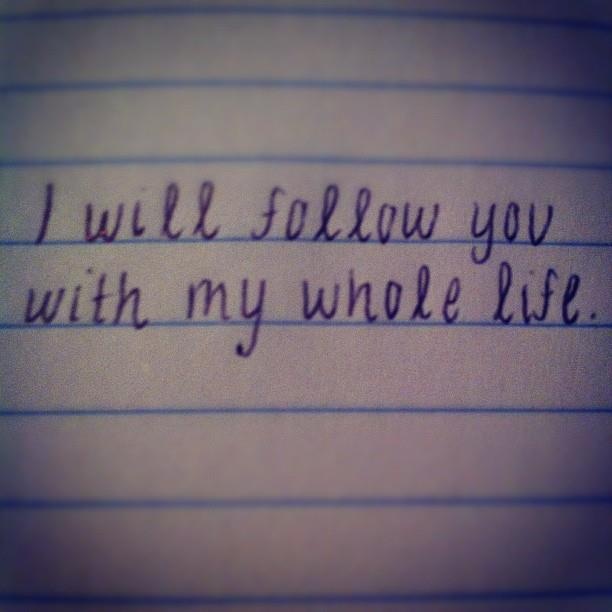 I will follow you
with my whole life.